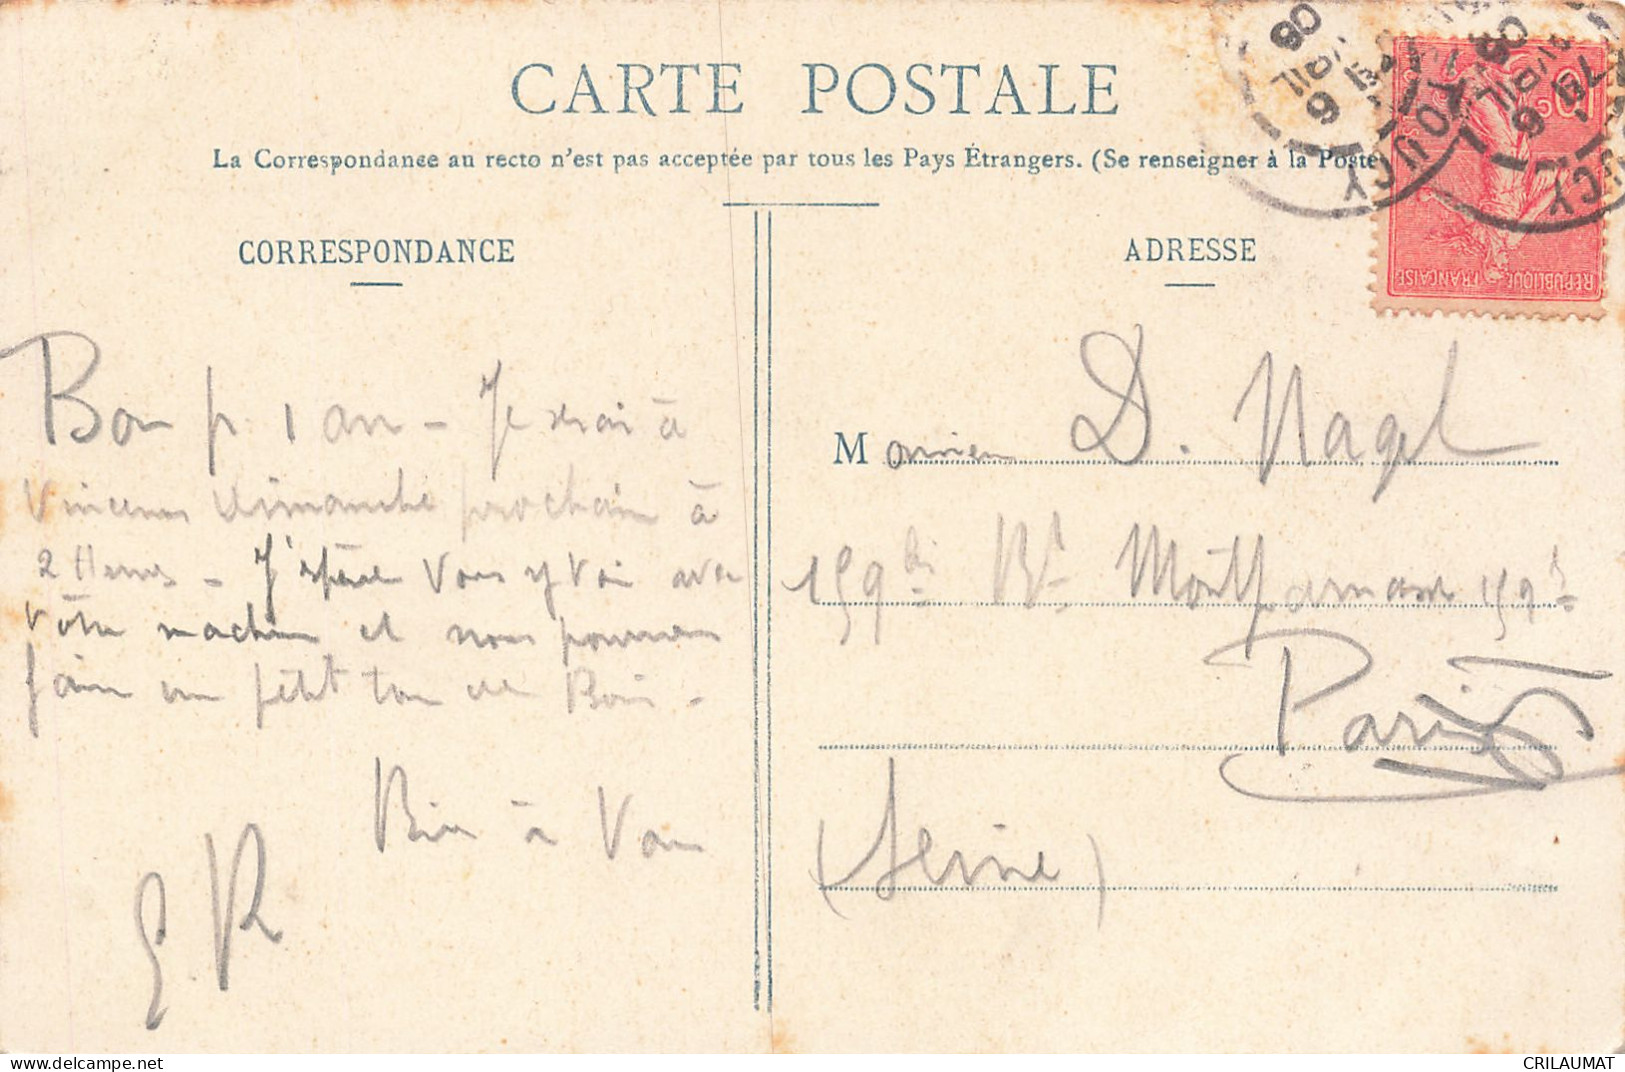 CARTE POSTALE
La Correspondance au recto n'est pas acceptée par tous les Pays Étrangers. (Se renseigner à la Poste)
CORRESPONDANCE
Bon p. 1 an - Je serai à
Vincennes dimanche prochain à
2 Heures - J'espère vous y voir avec
vôtre machine et nous pourrons
faire un petit tour au Bois -
Bien à Vous
ADRESSE
Monsieur D. Nagel
159 bis Bd Montparnasse 159 bis
Paris
(Seine)
RÉPUBLIQUE FRANÇAISE
6
AVRIL
08
6
AVRIL
08
CRILAUMAT